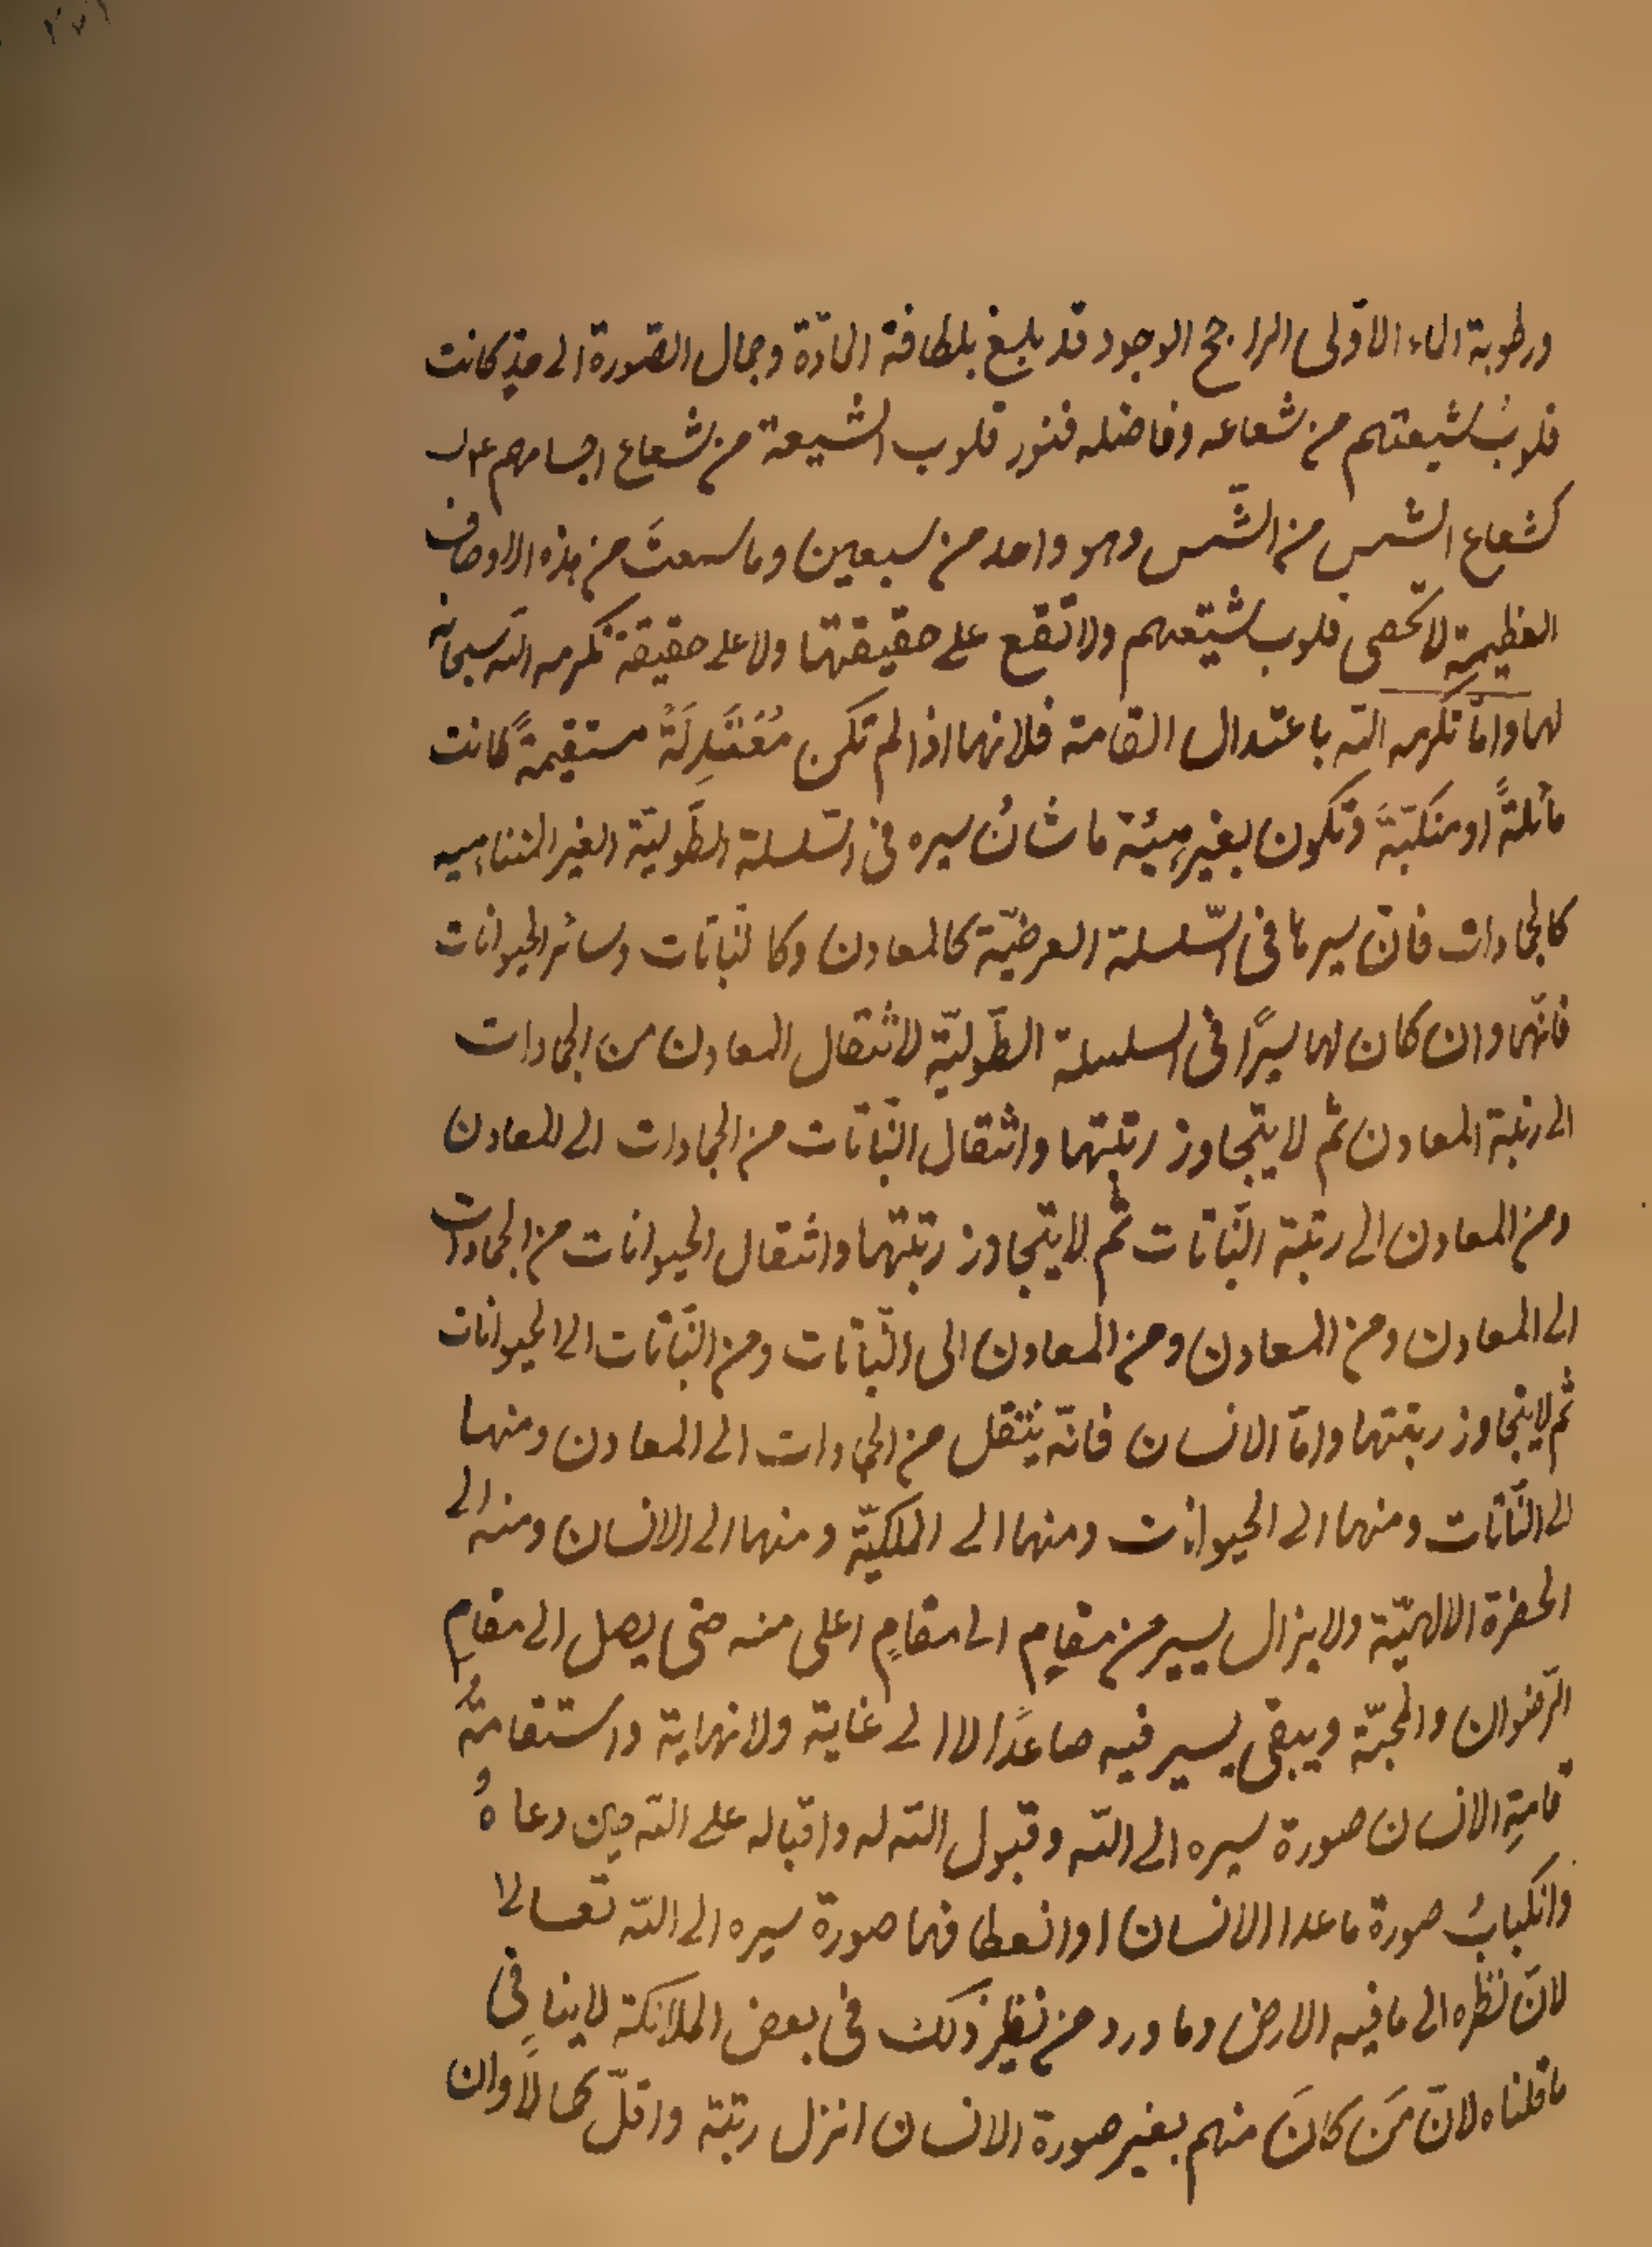 ٢٧١
ورطوبة الماء الاوّلى الراجح الوجود قد بلغ بلطافة المادّة وجمال الصّورة الى حدٍ كانت
قلوبُ شيعتهم من شعاعه وفاضله فنور قلوب الشيعة من شعاع اجسامهم
كشعاع الشمس من الشّمس وهو واحد من سبعين وما سمعتَ من هذه الاوصاف
العظيمة لا تحصى قلوب شيعتهم ولا تقع على حقيقتها ولا على حقيقة تكرمه الله سبحانه
لها وامّا تكرمه الله باعتدال القامة فلانها اذا لم تكن مُعْتَدِلَةً مستقيمةً كانت
مائلةً او منكبّةً وتكون بغير هيئة ما شانُ سيره فى السّلسلة الطّوليّة الغير المتناهيه
كالجمادات فانّ سيرها فى السّلسلة العرضيّة كالمعادن وكالنباتات وسائر الحيوانات
فانّها وان كان لها سيرًا فى السلسلة الطّوليّة لانتقال المعادن من الجمادات
الى رتبة المعادن ثم لا يتجاوز رتبتها وانتقال النّباتات من الجمادات الى المعادن
ومن المعادن الى رتبة النّباتات ثم لا يتجاوز رتبتها وانتقال الحيوانات من الجمادات
الى المعادن ومن المعادن ومن المعادن الى النّباتات ومن النّباتات الى الحيوانات
ثم لا يتجاوز رتبتها وامّا الانسان فانّه ينتقل من الجمادات الى المعادن ومنها
الى النّباتات ومنها الى الحيوانات ومنها الى الملكيّة ومنها الى الانسان ومنه الى
الحضرة الالهيّة ولا يزال يسير من مقام الى مقامٍ اعلى منه حتى يصل الى مقامِ
الرّضوان والمحبّة ويبقى يسير فيه صاعدًا لا الى غاية ولا نهاية واستقامةُ
قامةِ الانسان صورة سيره الى الله وقبول الله له واقباله على الله حين دعاهُ
وانكبابُ صورة ما عدا الانسان او انعطافها صورة سيره الى الله تعالى
لانّ نظره الى ما فيه الارض وما ورد من نظير ذلك فى بعض الملائكة لا ينافى
ما قلناه لانّ مَن كانَ منهم بغير صورة الانسان انزل رتبة واقلّ كمالًا وان